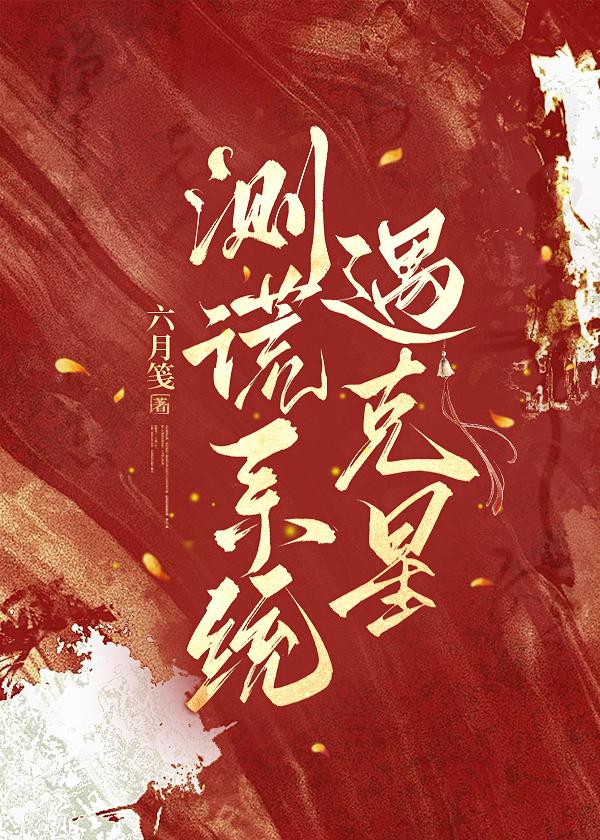 测谎系统
遇克星
六月笺 著